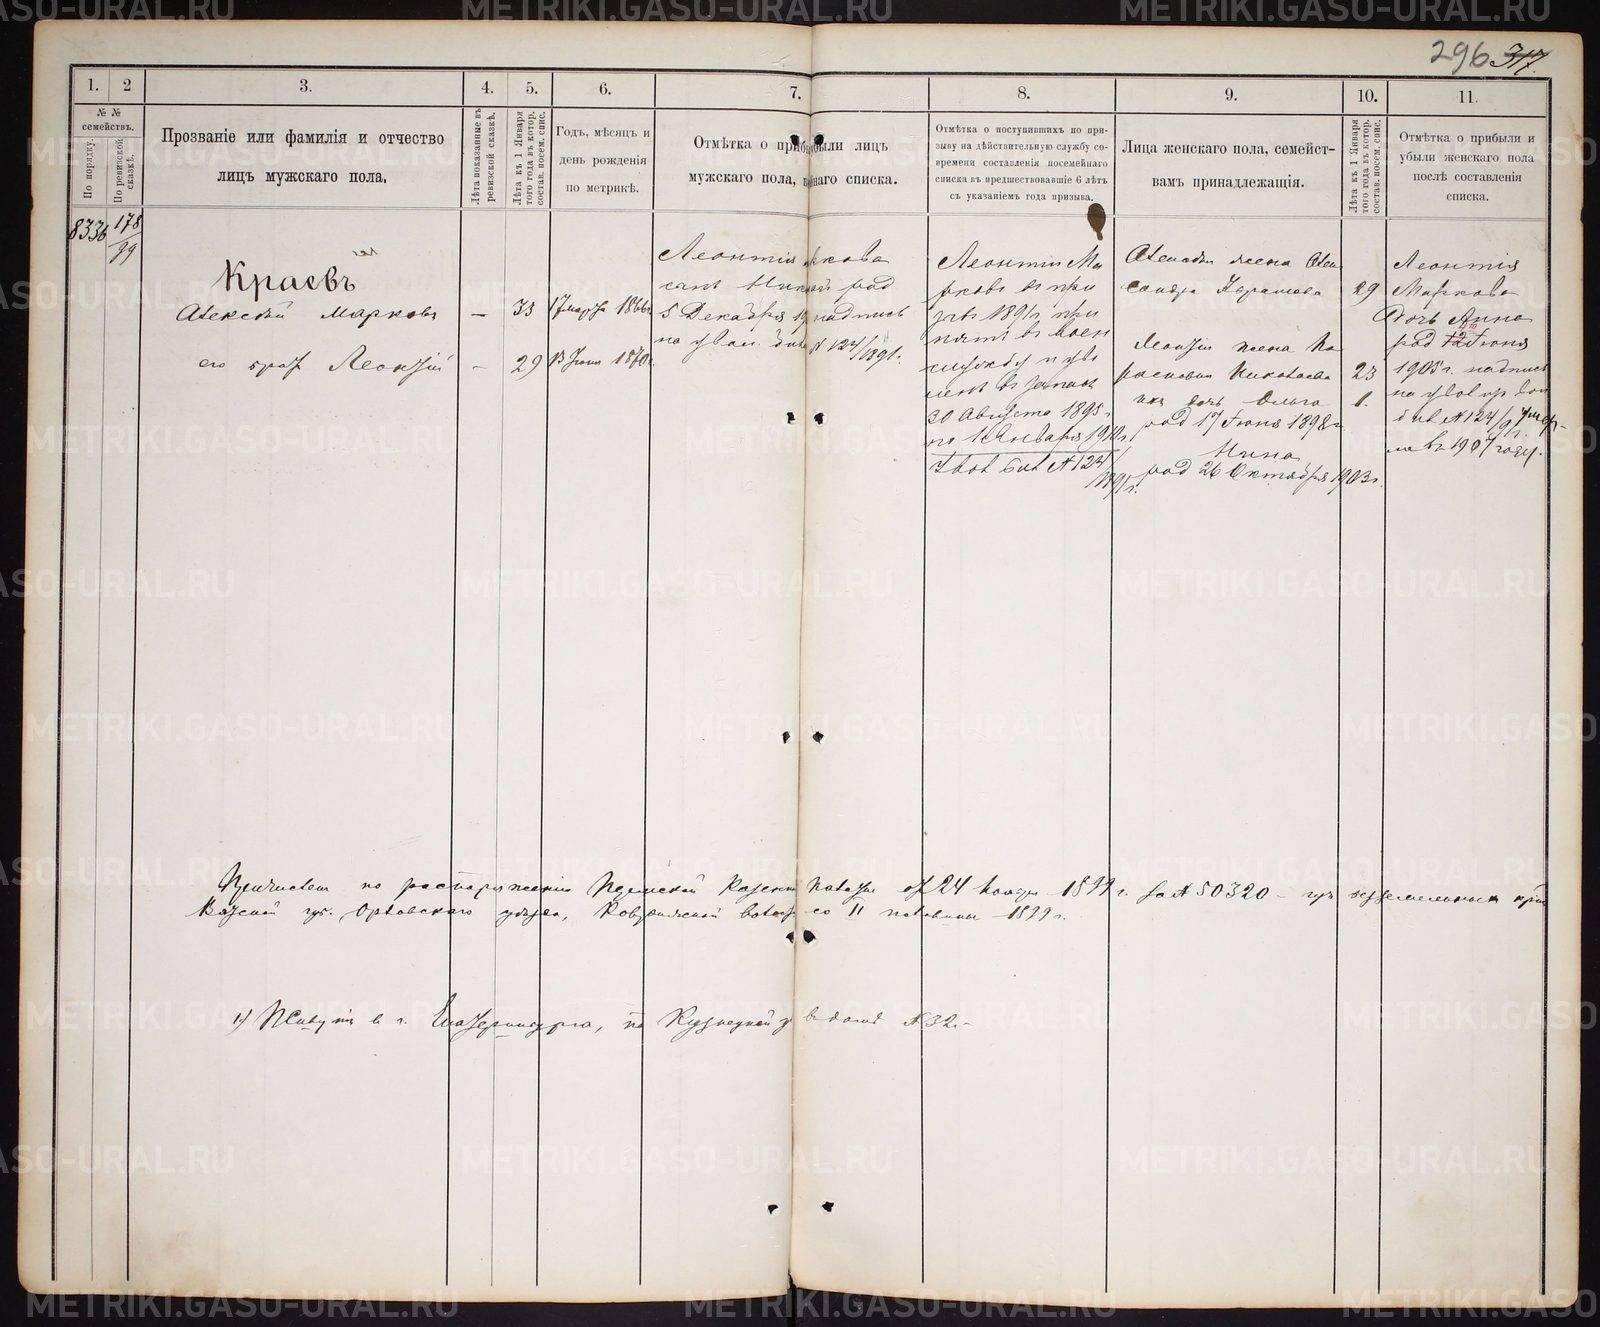 METRIKI.GASO-URAL.RU
296 317.
1. 2 3. 4. 5. 6. 7. 8. 9. 10. 11.
№ №
семействъ.
По порядку.
По ревизской сказкѣ.
Прозваніе или фамилія и отчество
лицъ мужскаго пола.
Лѣта показанные въ
ревизской сказкѣ.
Лѣта къ 1 Января
того года въ котор.
состав. посем. спис.
Годъ, мѣсяцъ и
день рожденія
по метрикѣ.
Отмѣтка о приб были лицъ
мужскаго пола, наго списка.
Отмѣтка о поступившихъ по при-
зыву на дѣйствительную службу со-
времени составленія посемейнаго
списка въ предшествовавшіе 6 лѣтъ
съ указаніемъ года призыва.
Лица женскаго пола, семейст-
вамъ принадлежащія.
Лѣта къ 1 Января
того года въ котор.
состав. посем. спис.
Отмѣтка о прибыли и
убыли женскаго пола
послѣ составленія
списка.
8336 178/99
Краевъ
Алексѣй Марковъ — 33 17 марта 1866 г.
его братъ Леонтій — 29 13 Іюня 1870 г.
Леонтія ркова
сынъ Никол род
5 Декабря надпись
на увол. бил. № 124/1891 г.
Леонтій Ма
рковъ въ при
зывъ 1891 г. при
нятъ въ воен
службу и уво
ленъ въ запасъ
30 Августа 1895 г.
по 1 Января 1910 г.
Увол бил № 124/1891 г.
Алексѣя жена Алек
сандра 29
Леонтія жена Па
расковья Николаева 23
ихъ дочь Ольга 1.
род 17 Іюня 1898 г.
Нина
род 26 Октября 1903 г.
Леонтія
Маркова
Дочь Анна
род 12 Іюня
1905 г. надпись
на увол
бил № 124/91 г. умер-
ла въ 1907 году.
Причислен по распоряженію Пермской Казенн Палаты от 24 Ноября 1899 г. за № 50320 — изъ безземельныхъ крес
Вятской губ. Орловскаго уѣзда, волости со II половины 1899 г.
1) Живутъ в г. Екатеринбургѣ, по Кузнецкой у въ домѣ № 32. —